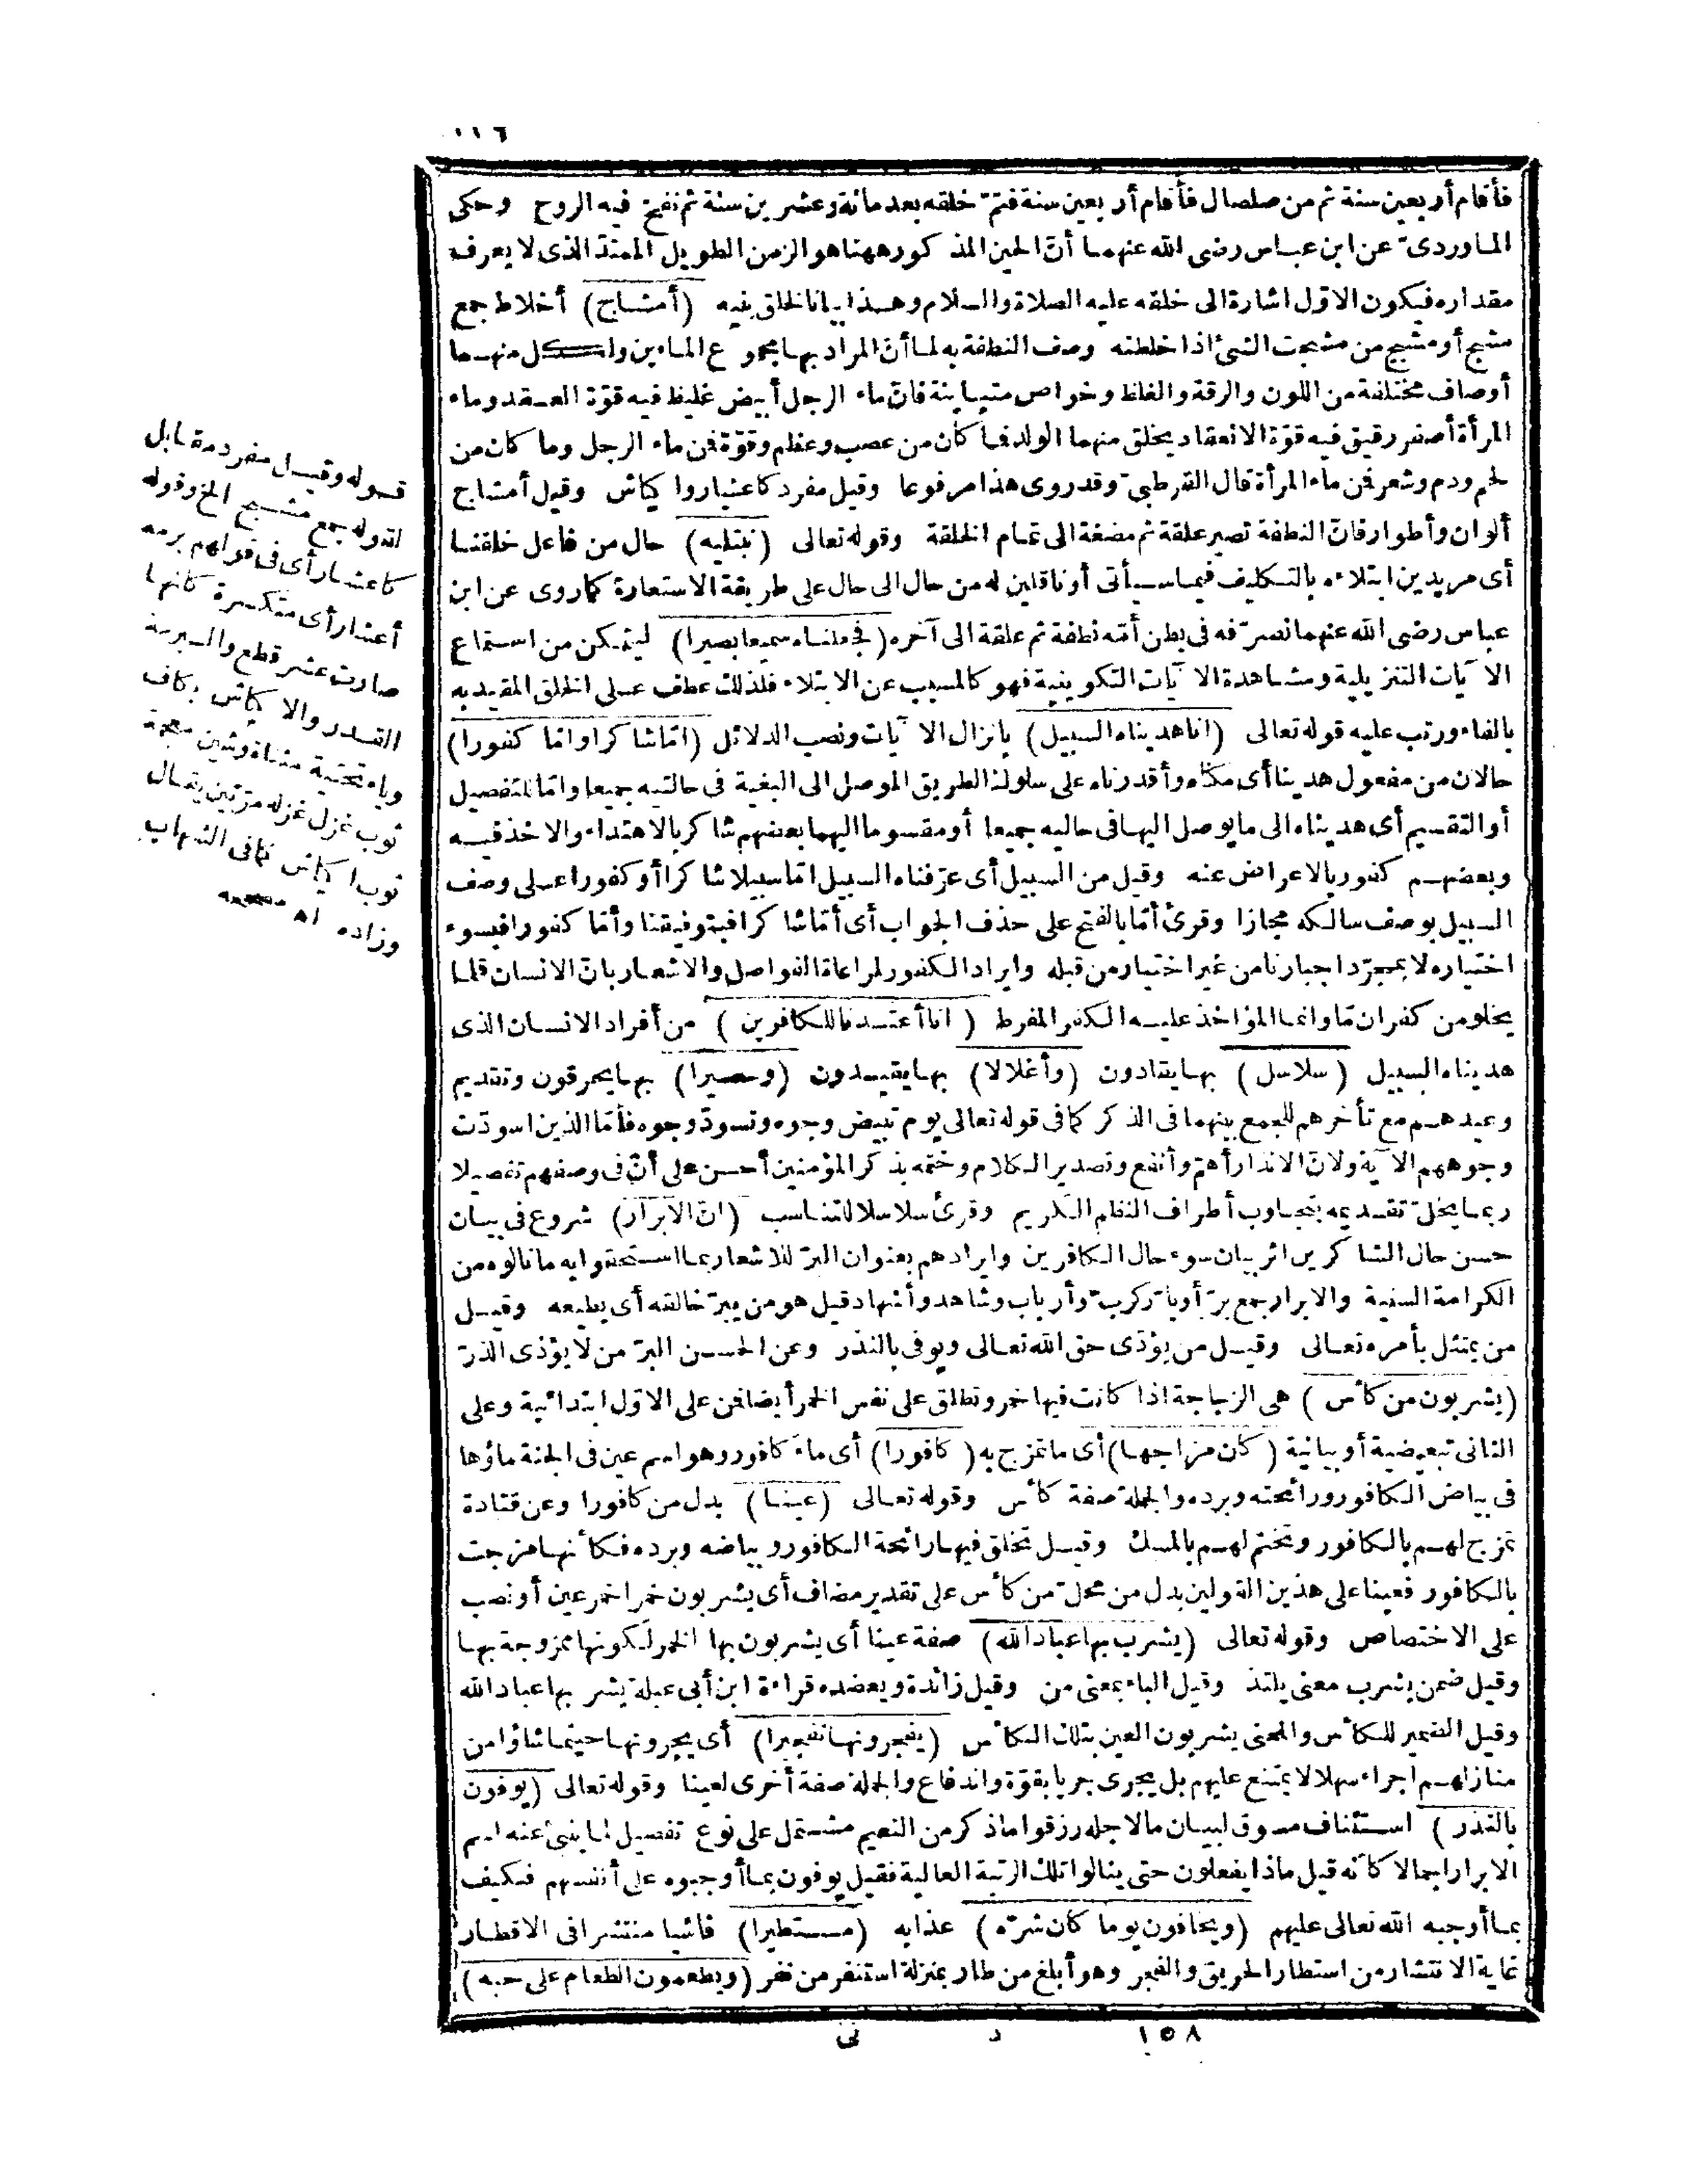 ١١٦
فأقام أربعين سنة ثم من صلصال فأقام أربعين سنة فتمّ خلقه بعد مائة وعشرين سنة ثم نفخ فيه الروح وحكى
الماوردىّ عن ابن عباس رضى الله عنهما أنّ الحين المذكور ههنا هو الزمن الطويل الممتدّ الذى لا يعرف
مقداره فيكون الاوّل اشارة الى خلقه عليه الصلاة والسلام وهذا بيانا لخلق بنيه (أمشاج) أخلاط جمع
مشج أو مشيج من مشجت الشئ اذا خلطته وصف النطفة به لما أنّ المراد بها مجموع الماءين ولكل منهما
أوصاف مختلفة من اللون والرقة والغلظ وخواص متباينة فانّ ماء الرجل أبيض غليظ فيه قوّة العقد وماء
المرأة أصفر رقيق فيه قوّة الانعقاد يخلق منهما الولد فما كان من عصب وعظم وقوّة فمن ماء الرجل وما كان من
لحم ودم وشعر فمن ماء المرأة قال القرطبىّ وقد روى هذا مرفوعا وقيل مفرد كاعشار وا كياش وقيل أمشاج
ألوان وأطوار فانّ النطفة تصير علقة ثم مضغة الى تمام الخلقة وقوله تعالى (نبتليه) حال من فاعل خلقنا
أى مريدين ابتلاءه بالتكليف فيما سيأتى أو ناقلين له من حال الى حال على طريقة الاستعارة كما روى عن ابن
عباس رضى الله عنهما نصرّفه فى بطن أمّه نطفة ثم علقة الى آخره (فجعلناه سميعا بصيرا) ليتمكن من استماع
الآيات التنزيلية ومشاهدة الآيات التكوينية فهو كالمسبب عن الابتلاء فلذلك عطف على الخلق المقيد به
بالفاء ورتب عليه قوله تعالى (انا هديناه السبيل) بانزال الآيات ونصب الدلائل (امّا شاكرا وامّا كفورا)
حالان من مفعول هدينا أى مكّناه وأقدرناه على سلوك الطريق الموصل الى البغية فى حالتيه جميعا وامّا للتفصيل
أو التقسيم أى هديناه الى ما يوصل اليها فى حاليه جميعا أو مقسوما اليهما بعضهم شاكر بالاهتداء والاخذ فيه
وبعضهم كفور بالاعراض عنه وقيل من السبيل أى عرّفناه السبيل امّا سبيلا شاكرا أو كفورا على وصف
السبيل بوصف سالكه مجازا وقرئ أمّا بالفتح على حذف الجواب أى أمّا شاكرا فبتوفيقنا وأمّا كفورا فبسوء
اختياره لا بمجرّد اجبارنا من غير اختيار من قبله وايراد الكفور لمراعاة الفواصل والاشعار بانّ الانسان قلما
يخلو من كفران مّا وانما المؤاخذ عليه الكفر المفرط (انا أعتدنا للكافرين) من أفراد الانسان الذى
هديناه السبيل (سلاسل) بها يقادون (وأغلالا) بها يقيدون (وسعيرا) بها يحرقون وتقديم
وعيدهم مع تأخرهم للجمع بينهما فى الذكر كما فى قوله تعالى يوم تبيض وجوه وتسودّ وجوه فأمّا الذين اسودّت
وجوههم الآية ولانّ الانذار أهمّ وأنفع وتصدير الكلام وختمه بذكر المؤمنين أحسن على أنّ فى وصفهم تفصيلا
ربما يخلّ تقديمه بتجاوب أطراف النظم الكريم وقرئ سلاسلا للتناسب (انّ الابرار) شروع فى بيان
حسن حال الشاكرين اثر بيان سوء حال الكافرين وايرادهم بعنوان البرّ للاشعار بما استحقوا به ما نالوه من
الكرامة السنية والابرار جمع برّ أو بارّ كربّ وأرباب وشاهد وأشهاد قيل هو من يبرّ خالقه أى يطيعه وقيل
من يمتثل بأمره تعالى وقيل من يؤدّى حق الله تعالى ويوفى بالنذر وعن الحسن البرّ من لا يؤذى الذرّ
(يشربون من كأس) هى الزجاجة اذا كانت فيها خمر وتطلق على نفس الخمر أيضا فمن على الاوّل ابتدائية وعلى
الثانى تبعيضية أو بيانية (كان مزاجها) أى ما تمزج به (كافورا) أى ماء كافور وهو اسم عين فى الجنة ماؤها
فى بياض الكافور ورائحته وبرده والجملة صفة كأس وقوله تعالى (عينا) بدل من كافورا وعن قتادة
تمزج لهم بالكافور وتختم لهم بالمسك وقيل تخلق فيها رائحة الكافور وبياضه وبرده فكأنها مزجت
بالكافور فعينا على هذين القولين بدل من محلّ من كأس على تقدير مضاف أى يشربون خمرا خمر عين أو نصب
على الاختصاص وقوله تعالى (يشرب بها عباد الله) صفة عينا أى يشربون بها الخمر لكونها ممزوجة بها
وقيل ضمن يشرب معنى يلتذ وقيل الباء بمعنى من وقيل زائدة ويعضده قراءة ابن أبى عبلة يشربها عباد الله
وقيل الضمير للكأس والمعنى يشربون العين بتلك الكأس (يفجرونها تفجيرا) أى يجرونها حيثما شاؤا من
منازلهم اجراء سهلا لا يمتنع عليهم بل يجرى جريا بقوّة واندفاع والجملة صفة أخرى لعينا وقوله تعالى (يوفون
بالنذر) استئناف مسوق لبيان ما لاجله رزقوا ما ذكر من النعيم مشتمل على نوع تفصيل لما ينبئ عنه اسم
الابرار اجمالا كأنه قيل ماذا يفعلون حتى ينالوا تلك الرتبة العالية فقيل يوفون بما أوجبوه على أنفسهم فكيف
بما أوجبه الله تعالى عليهم (ويخافون يوما كان شرّه) عذابه (مستطيرا) فاشيا منتشرا فى الاقطار
غاية الانتشار من استطار الحريق والفجر وهو أبلغ من طار بمنزلة استنفر من نفر (ويطعمون الطعام على حبه)
١٥٨ د نى
قوله وقيل مفرد مقابل
لقوله جمع مشيج الخ وقوله
كاعشار أى فى قولهم برمة
أعشار أى متكسرة كانها
صارت عشر قطع والبرمة
القدر والاكياش بكاف
وياء تحتية مثناة وشين معجمة
ثوب غزل غزله مرّتين يقال
ثوب اكياش كما فى الشهاب
وزاده اه مصححه